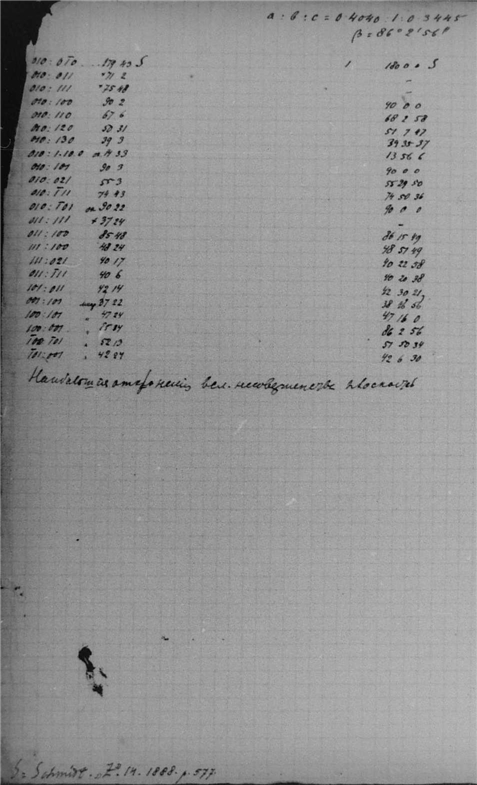 a : b : c = 0.4040 : 1 : 0.3445
β = 86° 2' 56"
010 : 0T0 179 43 S 1 180 0 0 S
010 : 011 71 2 -
010 : 111 75 48 -
010 : 100 90 2 90 0 0
010 : 110 67 6 68 2 58
010 : 120 50 31 51 7 47
010 : 130 39 3 39 35 37
010 : 1·10·0 14 33 13 56 6
010 : 101 90 3 90 0 0
010 : 021 55 3 55 29 50
010 : T11 74 43 74 50 36
010 : T01 90 22 90 0 0
011 : 111 37 24 -
011 : 100 85 48 86 15 49
111 : 100 48 24 48 57 49
111 : 021 40 17 40 22 38
011 : T11 40 6 40 20 38
101 : 011 42 14 42 30 21
001 : 101 37 22 38 46 56
100 : 101 " 47 24 47 16 0
100 : 001 " 86 2 56
T00 : T01 " 52 13 51 50 34
T01 : 001 " 42 27 42 6 30
Наибольшія отклоненія всл. несовершенства плоскостей
S = Schmidt. Zs. 14. 1888. p. 577